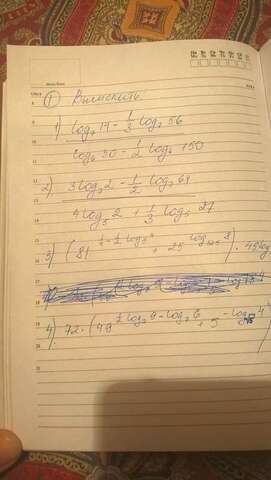 ① Вычислить:
1) log₇14 - 1/3 log₇56
log₆30 - 1/2 log₆150
2) 3log₇2 - 1/2 log₇64
4log₅2 + 1/3 log₅27
3) (81^(1/4 - 1/2 log₉4) + 25^(log₁₂₅8)) · 49^(log
4) 72 · (49^(1/2 log₇9 - log₇6) + 5^(-log_√5 4))